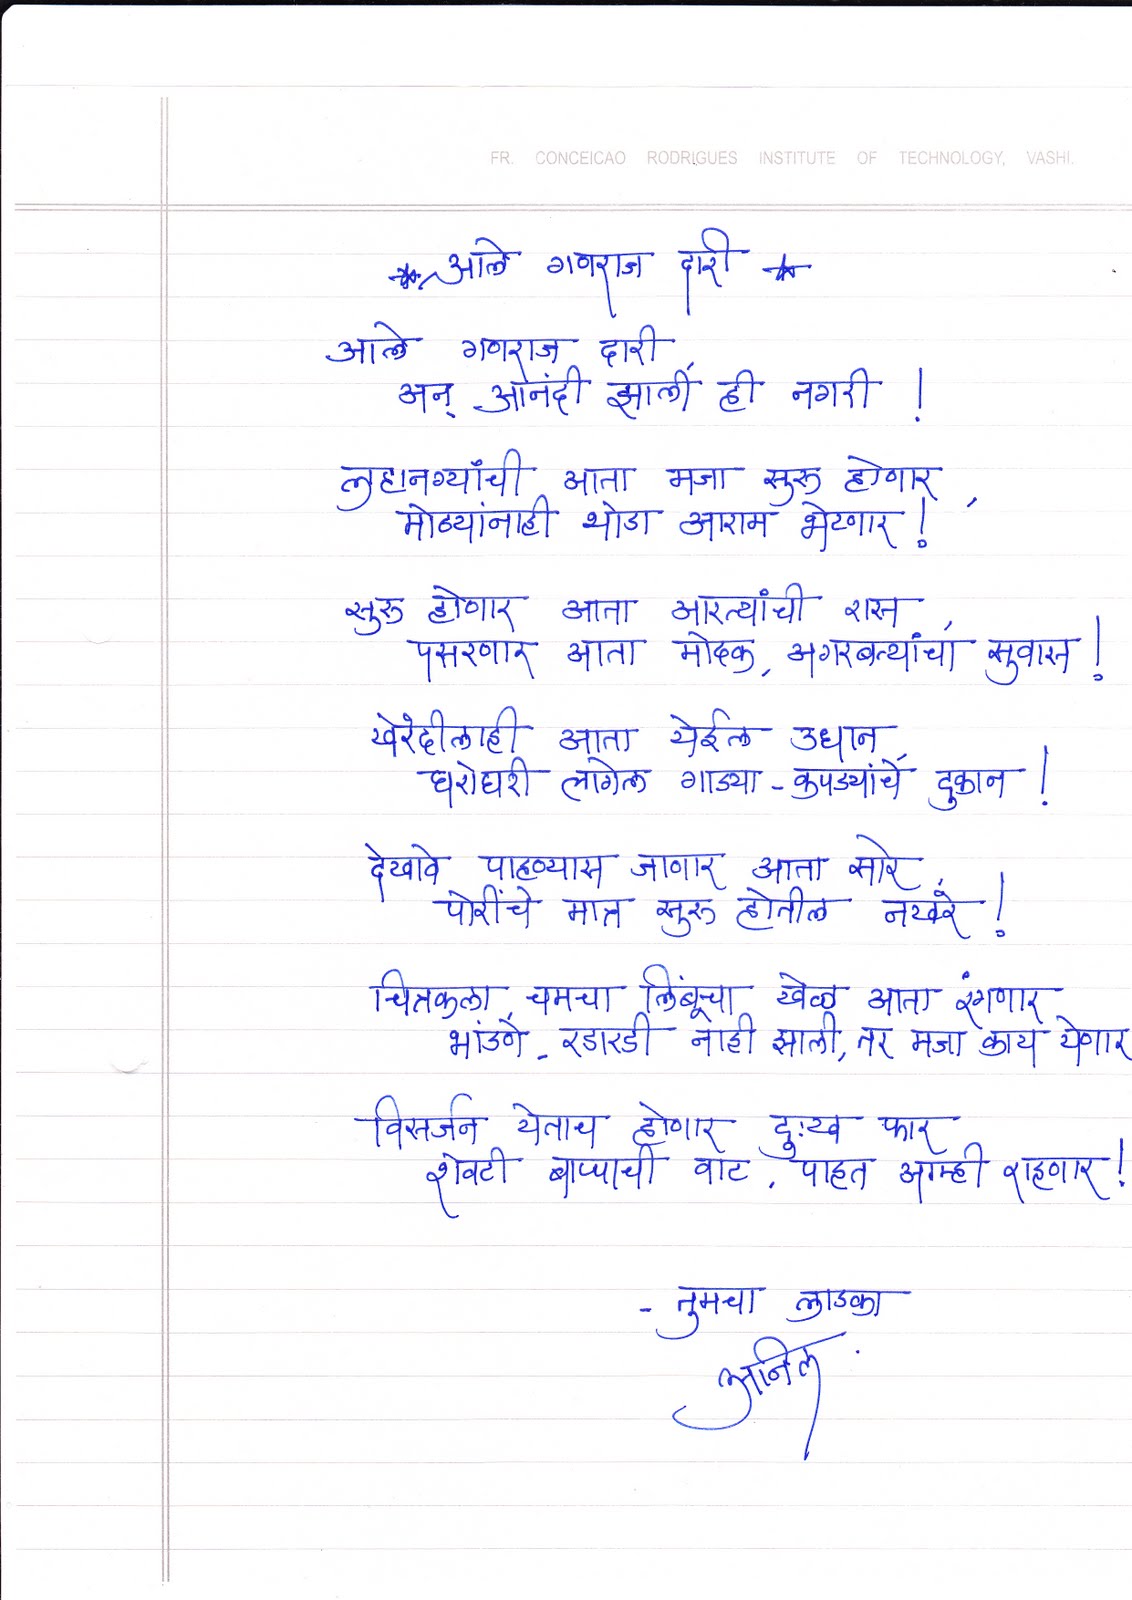 FR. CONCEICAO RODRIGUES INSTITUTE OF TECHNOLOGY, VASHI.
* आले गणराज दारी *
आले गणराज दारी,
अन् आनंदी झाली ही नगरी !
लहानग्यांची आता मजा सुरू होणार,
मोठ्यांनाही थोडा आराम भेटणार !
सुरू होणार आता आरत्यांची रास,
पसरणार आता मोदक, अगरबत्यांचा सुवास !
खरेदीलाही आता येईल उधान,
घरोघरी लागेल गाड्या - कपड्यांचे दुकान !
देखावे पाहण्यास जाणार आता सारे,
पोरींचे मात्र सुरू होतील नखरे !
चित्रकला, चमचा लिंबूचा खेळ आता रंगणार
भांडणे - रडारडी नाही झाली, तर मजा काय येणार
विसर्जन येताच होणार दु:ख फार
शेवटी बाप्पाची वाट, पाहत आम्ही राहणार !
- तुमचा लाडका
अनिल.